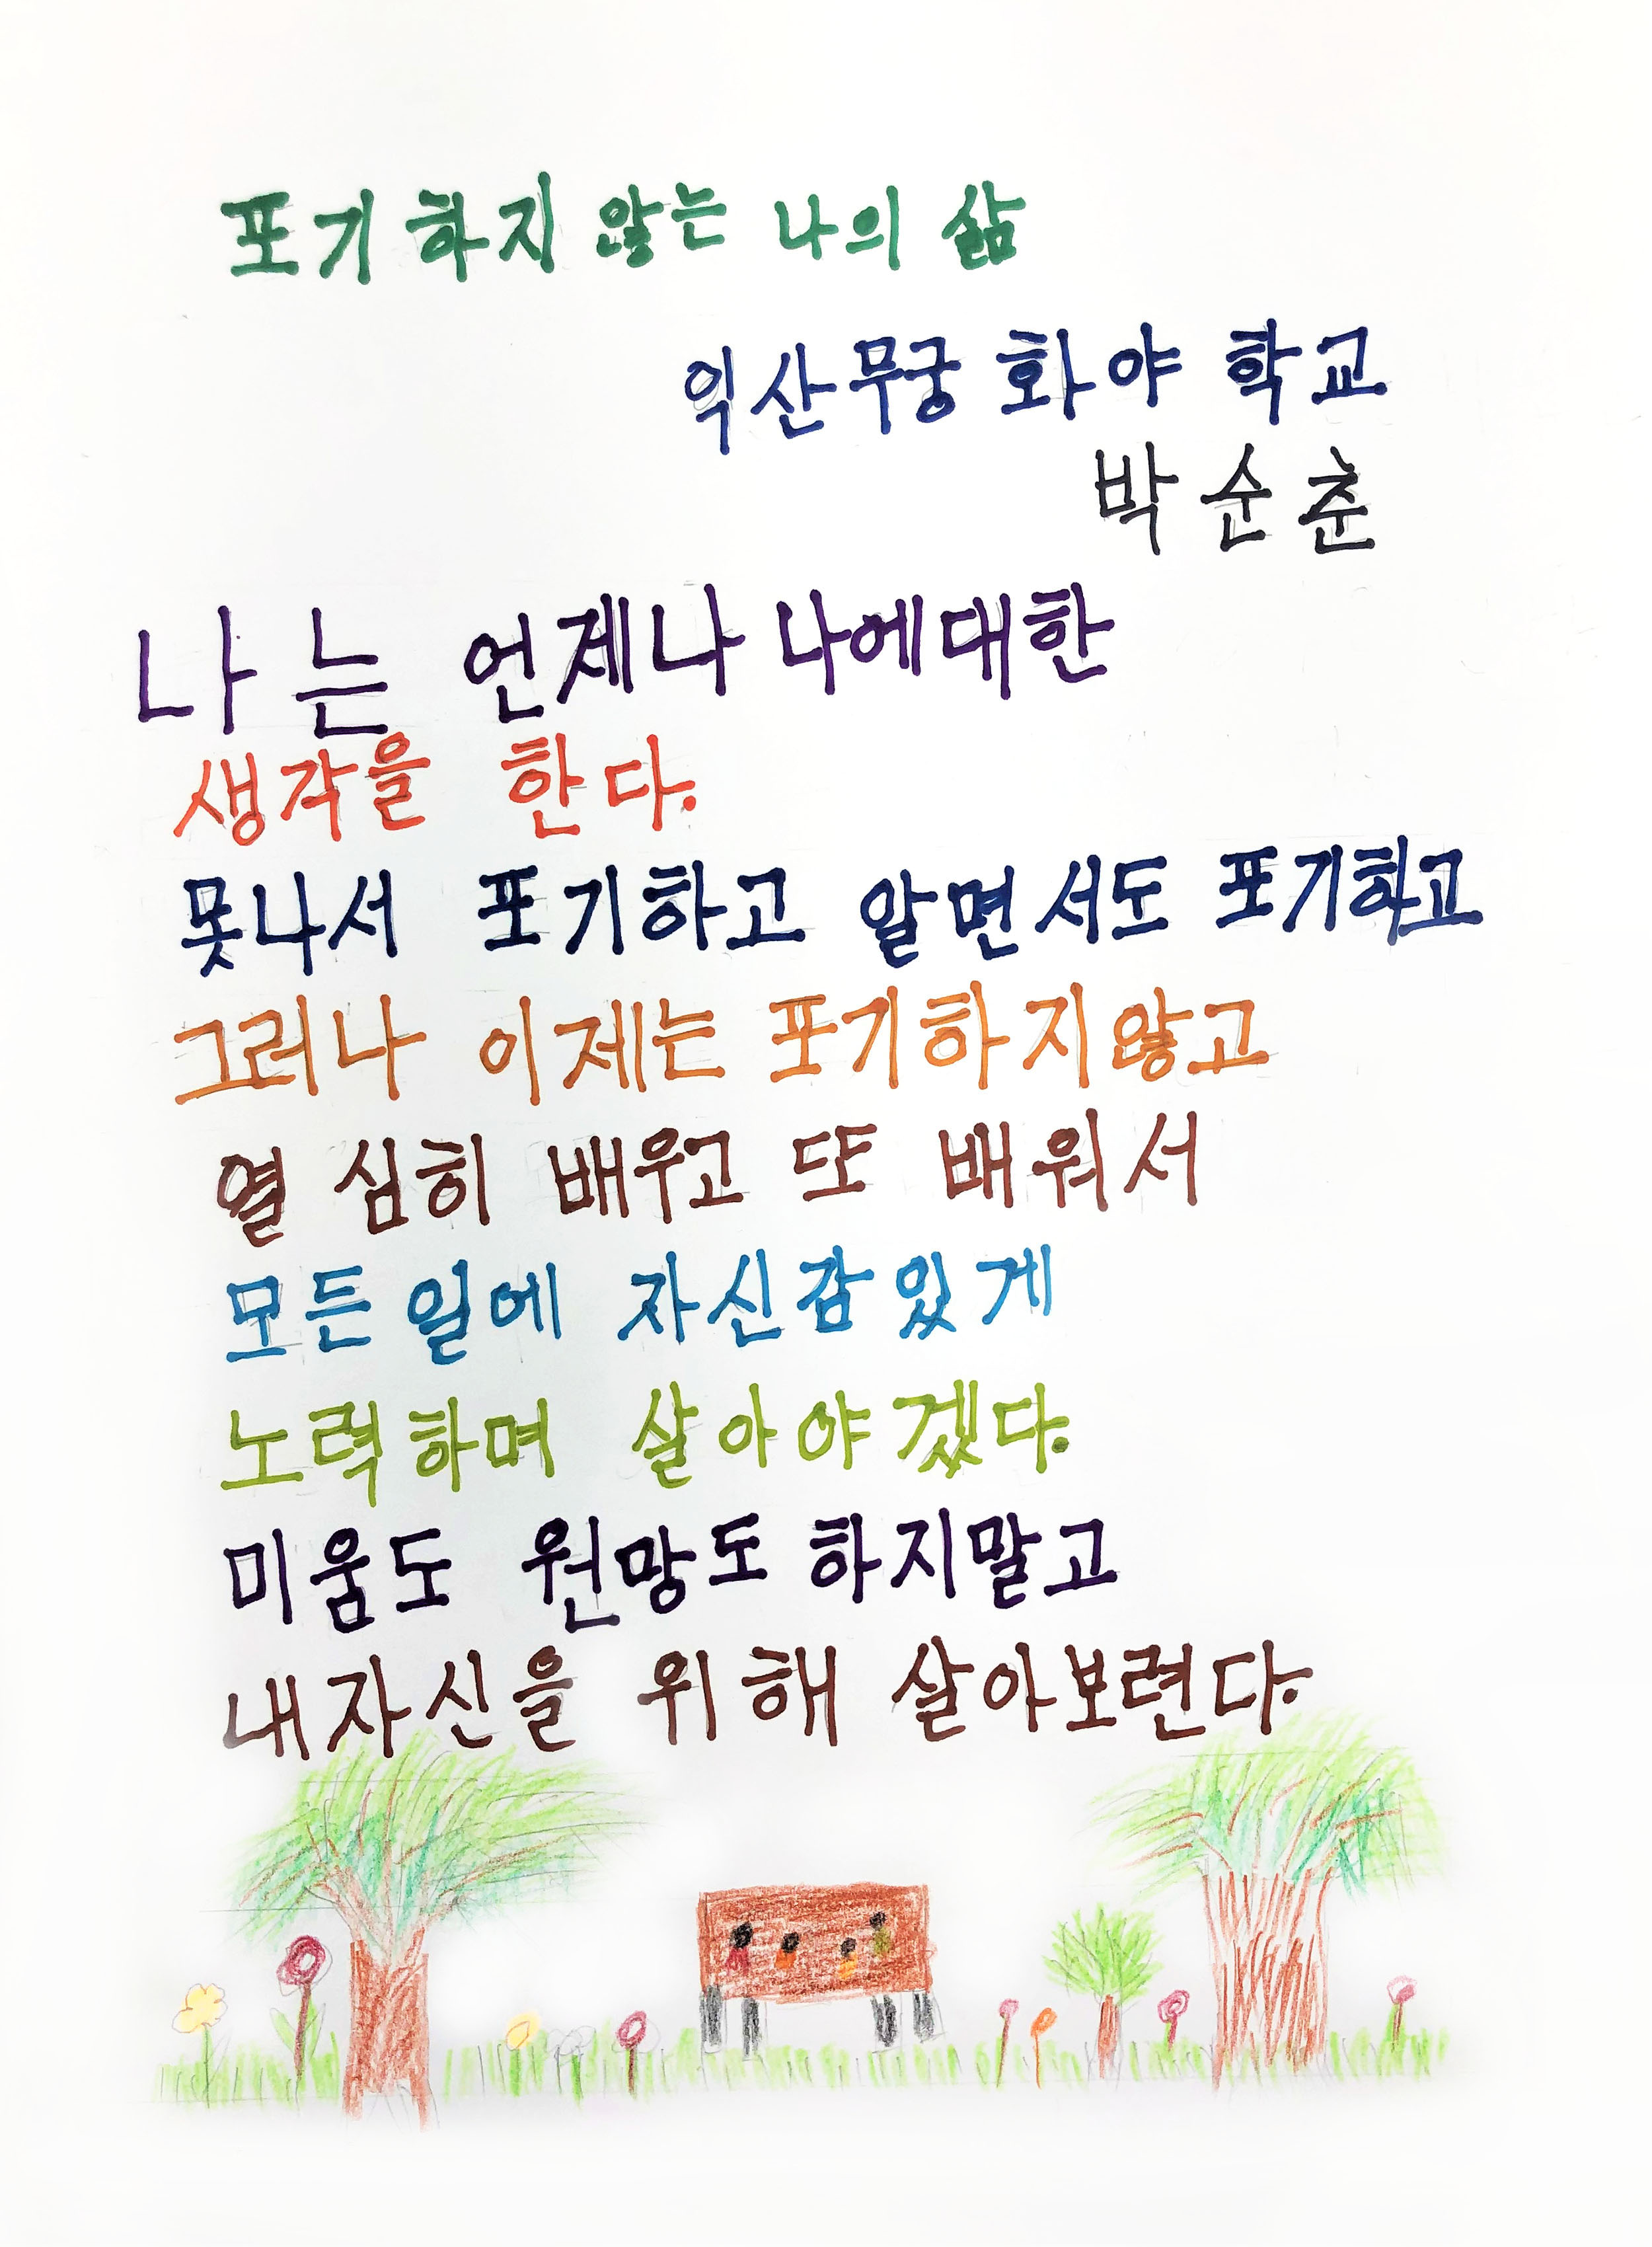 포기하지 않는 나의 삶
익산무궁화야학교
박순춘
나는 언제나 나에대한
생각을 한다.
못나서 포기하고 알면서도 포기하고
그러나 이제는 포기하지않고
열심히 배우고 또 배워서
모든일에 자신감있게
노력하며 살아야겠다.
미움도 원망도 하지말고
내자신을 위해 살아보련다.